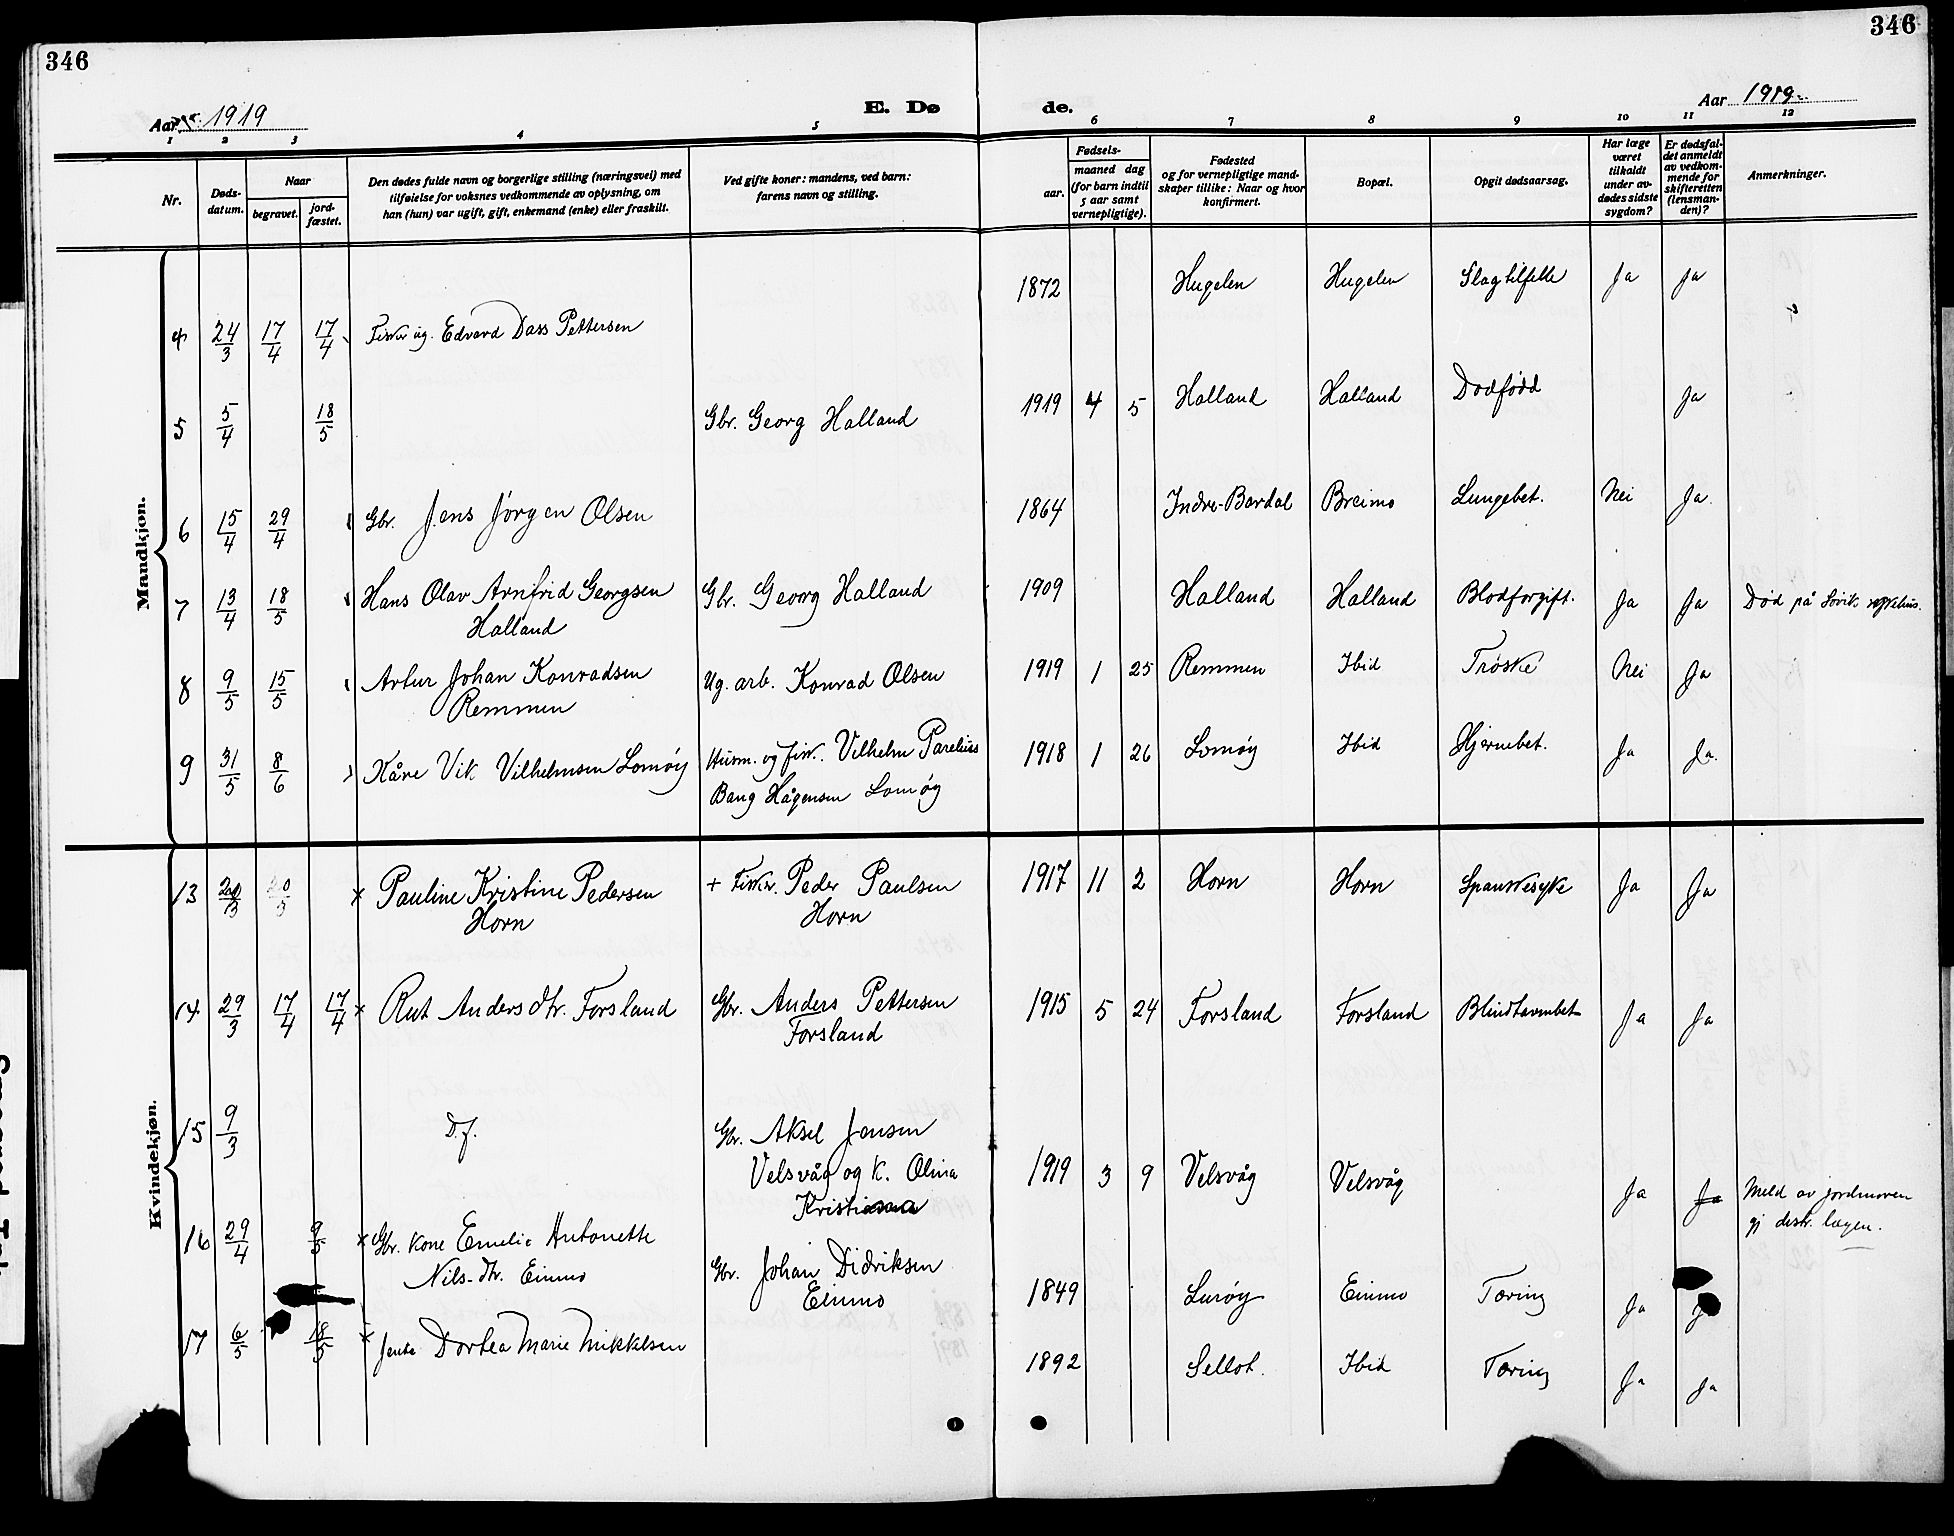 346
346
Aar 1919
E. Dø de.
Aar 1919.
1 2 3 4 5 6 7 8 9 10 11 12
Nr.
Døds-
datum.
Naar
begravet.
jord-
fæstet.
Den dødes fulde navn og borgerlige stilling (næringsvei) med
tilføielse for voksnes vedkommende av oplysning, om
han (hun) var ugift, gift, enkemand (enke) eller fraskilt.
Ved gifte koner: mandens, ved barn:
farens navn og stilling.
Fødsels-
aar.
maaned dag
(for barn indtil
5 aar samt
vernepligtige).
Fødested
og for vernepligtige mand-
skaper tillike: Naar og hvor
konfirmert.
Bopæl.
Opgit dødsaarsag.
Har læge
været
tilkaldt
under av-
dødes sidste
sygdom?
Er dødsfal-
det anmeldt
av vedkom-
mende for
skifteretten
(lensman-
den)?
Anmerkninger.
Mandkjøn.
4 24/3 17/4 17/4 Fisker ug. Edvard Dass Pettersen 1872 Hugelen Hugelen Slagtilfelle Ja Ja
5 5/4 18/5 Gbr. Georg Halland 1919 4 5 Halland Halland Dodfødd Ja
6 15/4 29/4 Gbr. Jens Jørgen Olsen 1864 Indre-Bardal Breimo Lungebet. Nei Ja.
7 13/4 18/5 Hans Olav Arnfrid Georgsen Gbr. Georg Halland 1909 Halland Halland Blodforgift. Ja Ja Død på Søvik sykehus.
Halland
8 9/5 15/5 Artur Johan Konradsen Ug. arb. Konrad Olsen 1919 1 25 Remmen Ibid Trøske Nei Ja
Remmen
9 31/5 8/6 Kåre Vik Vilhelmsen Lomøy Husm. og fisk. Vilhelm Parelius 1918 1 26 Lomøy Ibid Hjernebet. Ja Ja.
Bang Hågensen Lomøy
Kvindekjøn.
13 20/3 20/5 x Pauline Kristine Pedersen + Fisker. Peder Paulsen 1917 11 2 Horn Horn Spanskesyke Ja Ja
Horn Horn
14 29/3 17/4 17/4 x Rut Andersdtr. Forsland Gbr. Anders Pettersen 1915 5 24 Forsland Forsland Blindtarmbet Ja Ja
Forsland
15 9/3 D.f. Gbr. Aksel Jensen
Velsvåg og k. Olina 1919 3 9 Velsvåg Velsvåg Ja Ja Meld av jordmoren
gj distr. lægen.
16 29/4 9/5 x Gbr. kone Emelie Antonette Gbr. Johan Didriksen
Nils-dtr. Einmo Einmo 1849 Lurøy Einmo Tæring Ja
17 6/5 18/5 x Jente Dortea Marie Mikkelsen 1892 Selbot. Ibid Tæring Ja Ja